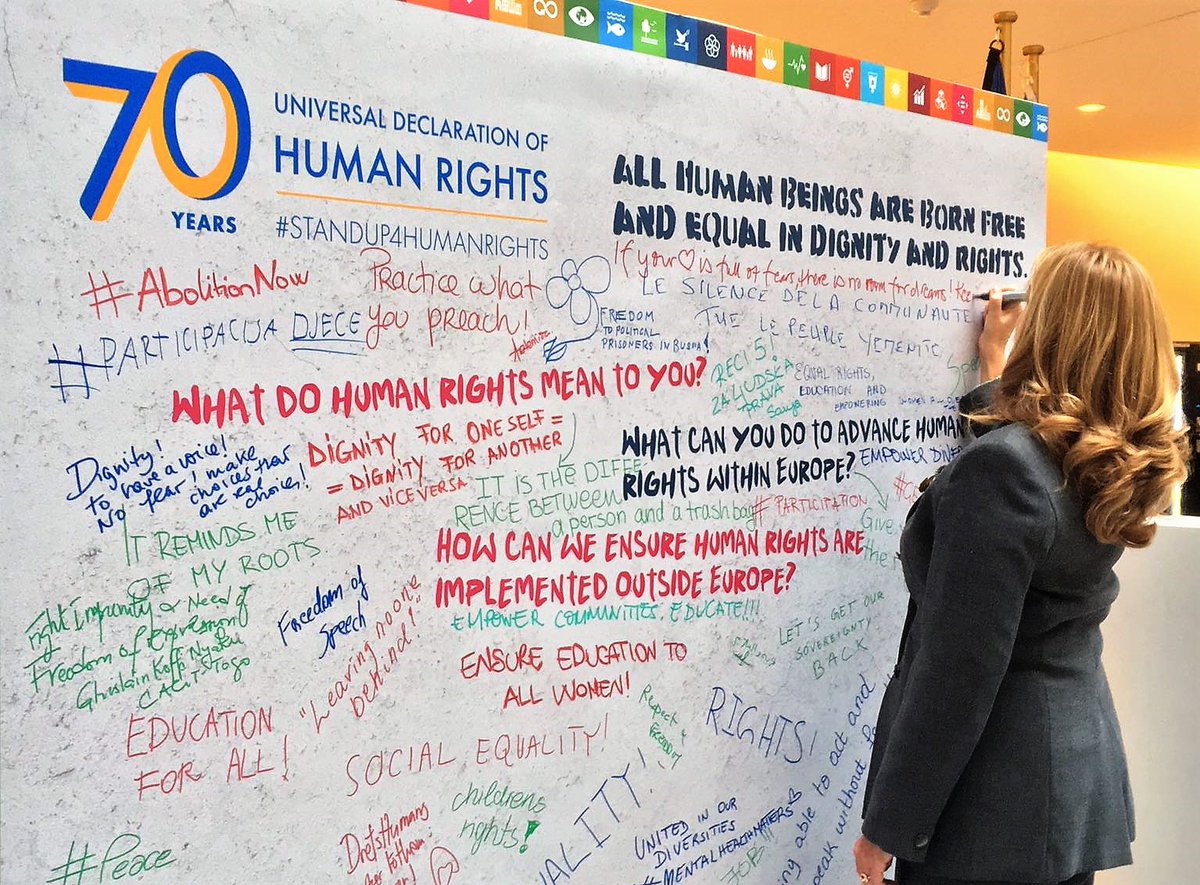 70
YEARS
UNIVERSAL DECLARATION OF
HUMAN RIGHTS
#STANDUP4HUMANRIGHTS
ALL HUMAN BEINGS ARE BORN FREE
AND EQUAL IN DIGNITY AND RIGHTS.
If your ♡ is full of fears, there is no room for dreams!
LE SILENCE DE LA COMMUNAUTE
TUE LE PEUPLE YEMENITE
#AbolitionNow
Practice what
you preach!
#PARTICIPACIJA DJECE
FREEDOM
TO POLITICAL
PRISONERS IN RUSSIA!
RECI 5!
ZA LJUDSKA
PRAVA
Sanja
EQUAL RIGHTS,
EDUCATION AND
EMPOWERING WOMEN
WHAT DO HUMAN RIGHTS MEAN TO YOU?
WHAT CAN YOU DO TO ADVANCE HUMAN
RIGHTS WITHIN EUROPE?
EMPOWER
Dignity!
to have a voice!
No fear! make
choices that
are real
choices!
DIGNITY FOR ONESELF =
= DIGNITY FOR ANOTHER
AND VICE VERSA
IT IS THE DIFFE
RENCE BETWEEN
a person and a trashbag
# PARTICIPATION
Give
the
IT REMINDS ME
OF MY ROOTS
HOW CAN WE ENSURE HUMAN RIGHTS ARE
IMPLEMENTED OUTSIDE EUROPE?
EMPOWER COMMUNITIES. EDUCATE!!!
Fight Impunity & Need of
Freedom of Expression
Ghislain Koffi Nyaku
CACIT-TOGO
Freedom of
Speech
"Leaving no one
behind!"
ENSURE EDUCATION TO
ALL WOMEN!
LET'S GET OUR
SOVEREIGNTY
BACK
EDUCATION
FOR ALL!
SOCIAL EQUALITY!
Respect
FREEDOM
RIGHTS!
being able to act and
speak without
childrens
rights!
DretsHumans
UALITY!
UNITED IN OUR
DIVERSITIES
#MENTALHEALTHMATTERS
JOB
#Peace